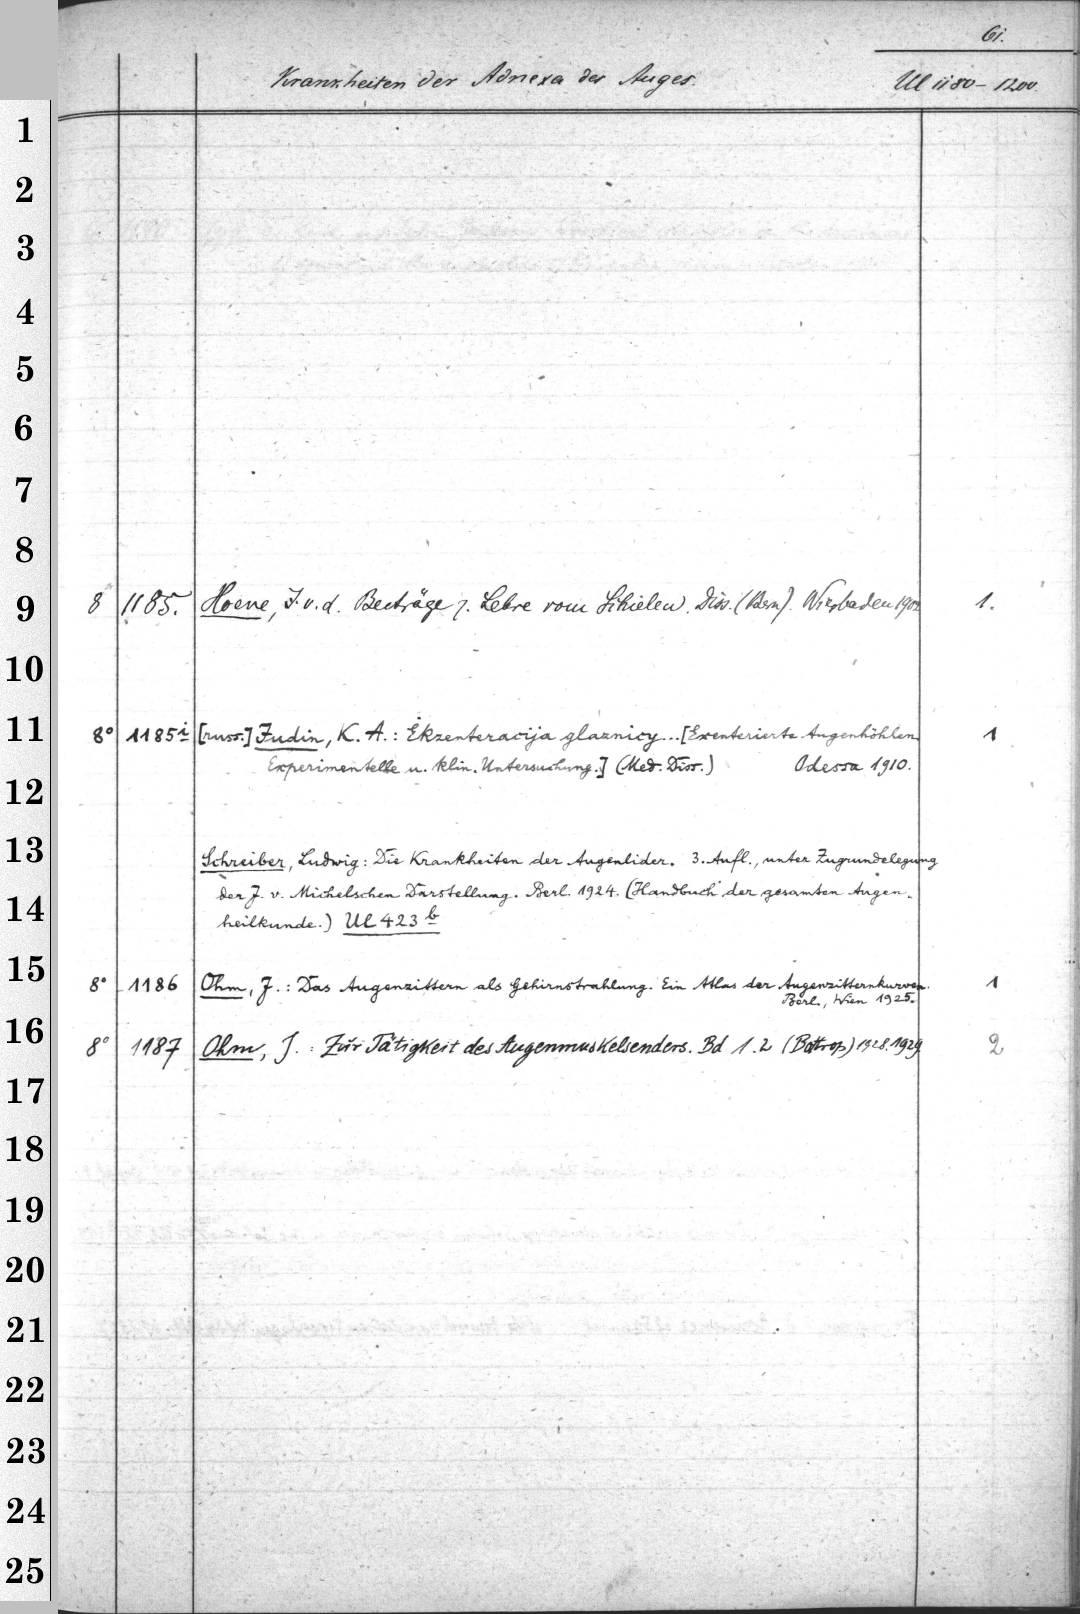 61.
Krankheiten der Adnexa des Auges. Ul 1180-1200.
1
2
3
4
5
6
7
8
9 8 1185. Hoeve, J. v. d. Beiträge z. Lehre vom Schielen. Diss. (Bern). Wiesbaden 1902 1.
10
11 8° 1185i [russ.] Judin, K. A.: Ėkzenteracija glaznicy... [Exenterierte Augenhöhlen. 1
Experimentelle u. klin. Untersuchung.] (Med. Diss.) Odessa 1910.
12
13 Schreiber, Ludwig: Die Krankheiten der Augenlider. 3. Aufl., unter Zugrundelegung
der J. v. Michelschen Darstellung. Berl. 1924. (Handbuch der gesamten Augen-
14 heilkunde.) Ul 423 b
15 8° 1186 Ohm, J.: Das Augenzittern als Gehirnstrahlung. Ein Atlas der Augenzitternkurven. 1
Berl., Wien 1925.
16 8° 1187 Ohm, J.: Zur Tätigkeit des Augenmuskelsenders. Bd 1.2 (Bottrop) 1928. 1929. 2
17
18
19
20
21
22
23
24
25